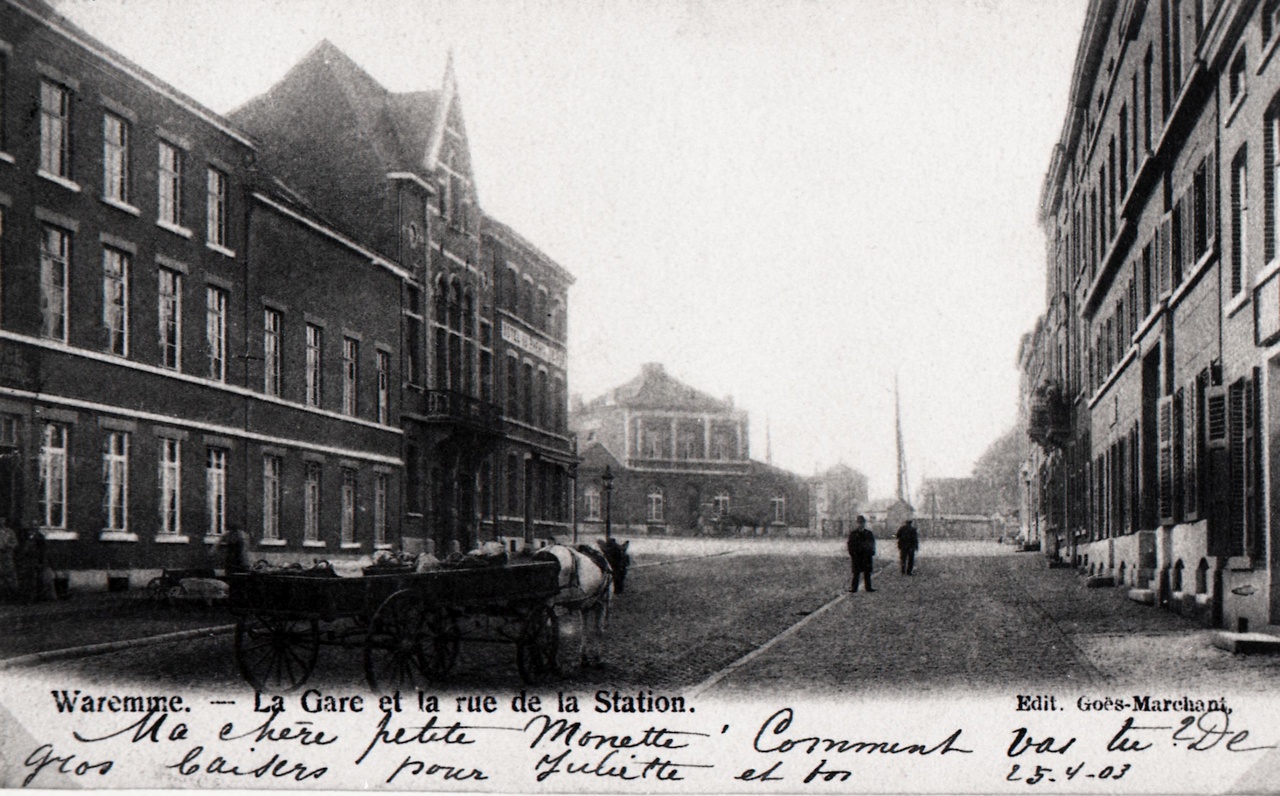 Waremme. — La Gare et la rue de la Station.
Edit. Goës-Marchant,
Ma chère petite Monette ! Comment vas tu ? De
gros baisers pour Juliette et toi
25-4-03